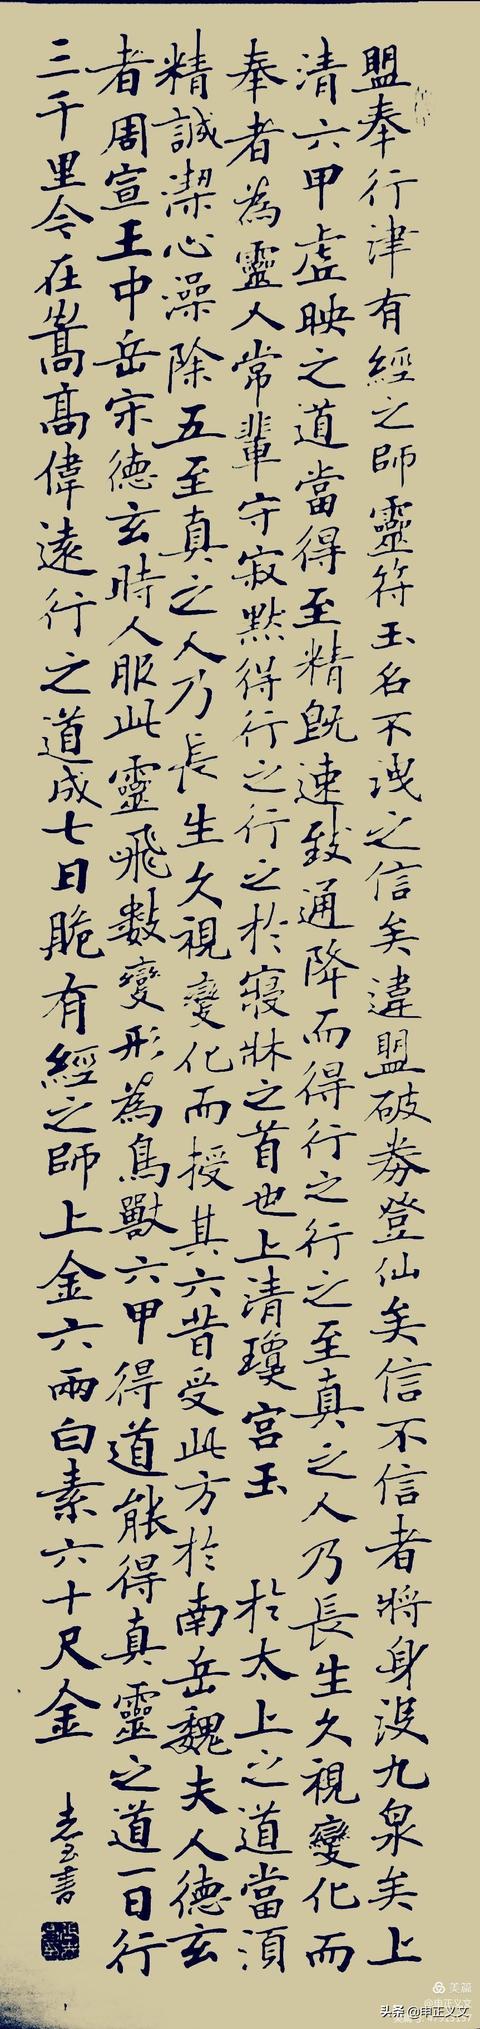 盟奉行津有經之師靈符玉名不洩之信矣違盟破券登仙矣信不信者將身没九泉矣上
清六甲虛映之道當得至精既速致通降而得行之行之至真之人乃長生久視變化而
奉者為靈人常輩守寂默得行之行之於寢牀之首也上清瓊宮玉 於太上之道當須
精誠潔心澡除五至真之人乃長生久視變化而授其六昔受此方於南岳魏夫人德玄
者周宣王中岳宋德玄時人服此靈飛數變形為鳥獸六甲得道能得真靈之道一日行
三千里今在嵩高偉遠行之道成七日脆有經之師上金六兩白素六十尺金
志玉書
美篇
@申正义文
头条 @申正义文